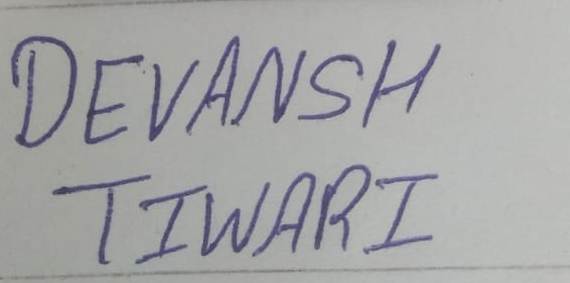 DEVANSH
TIWARI